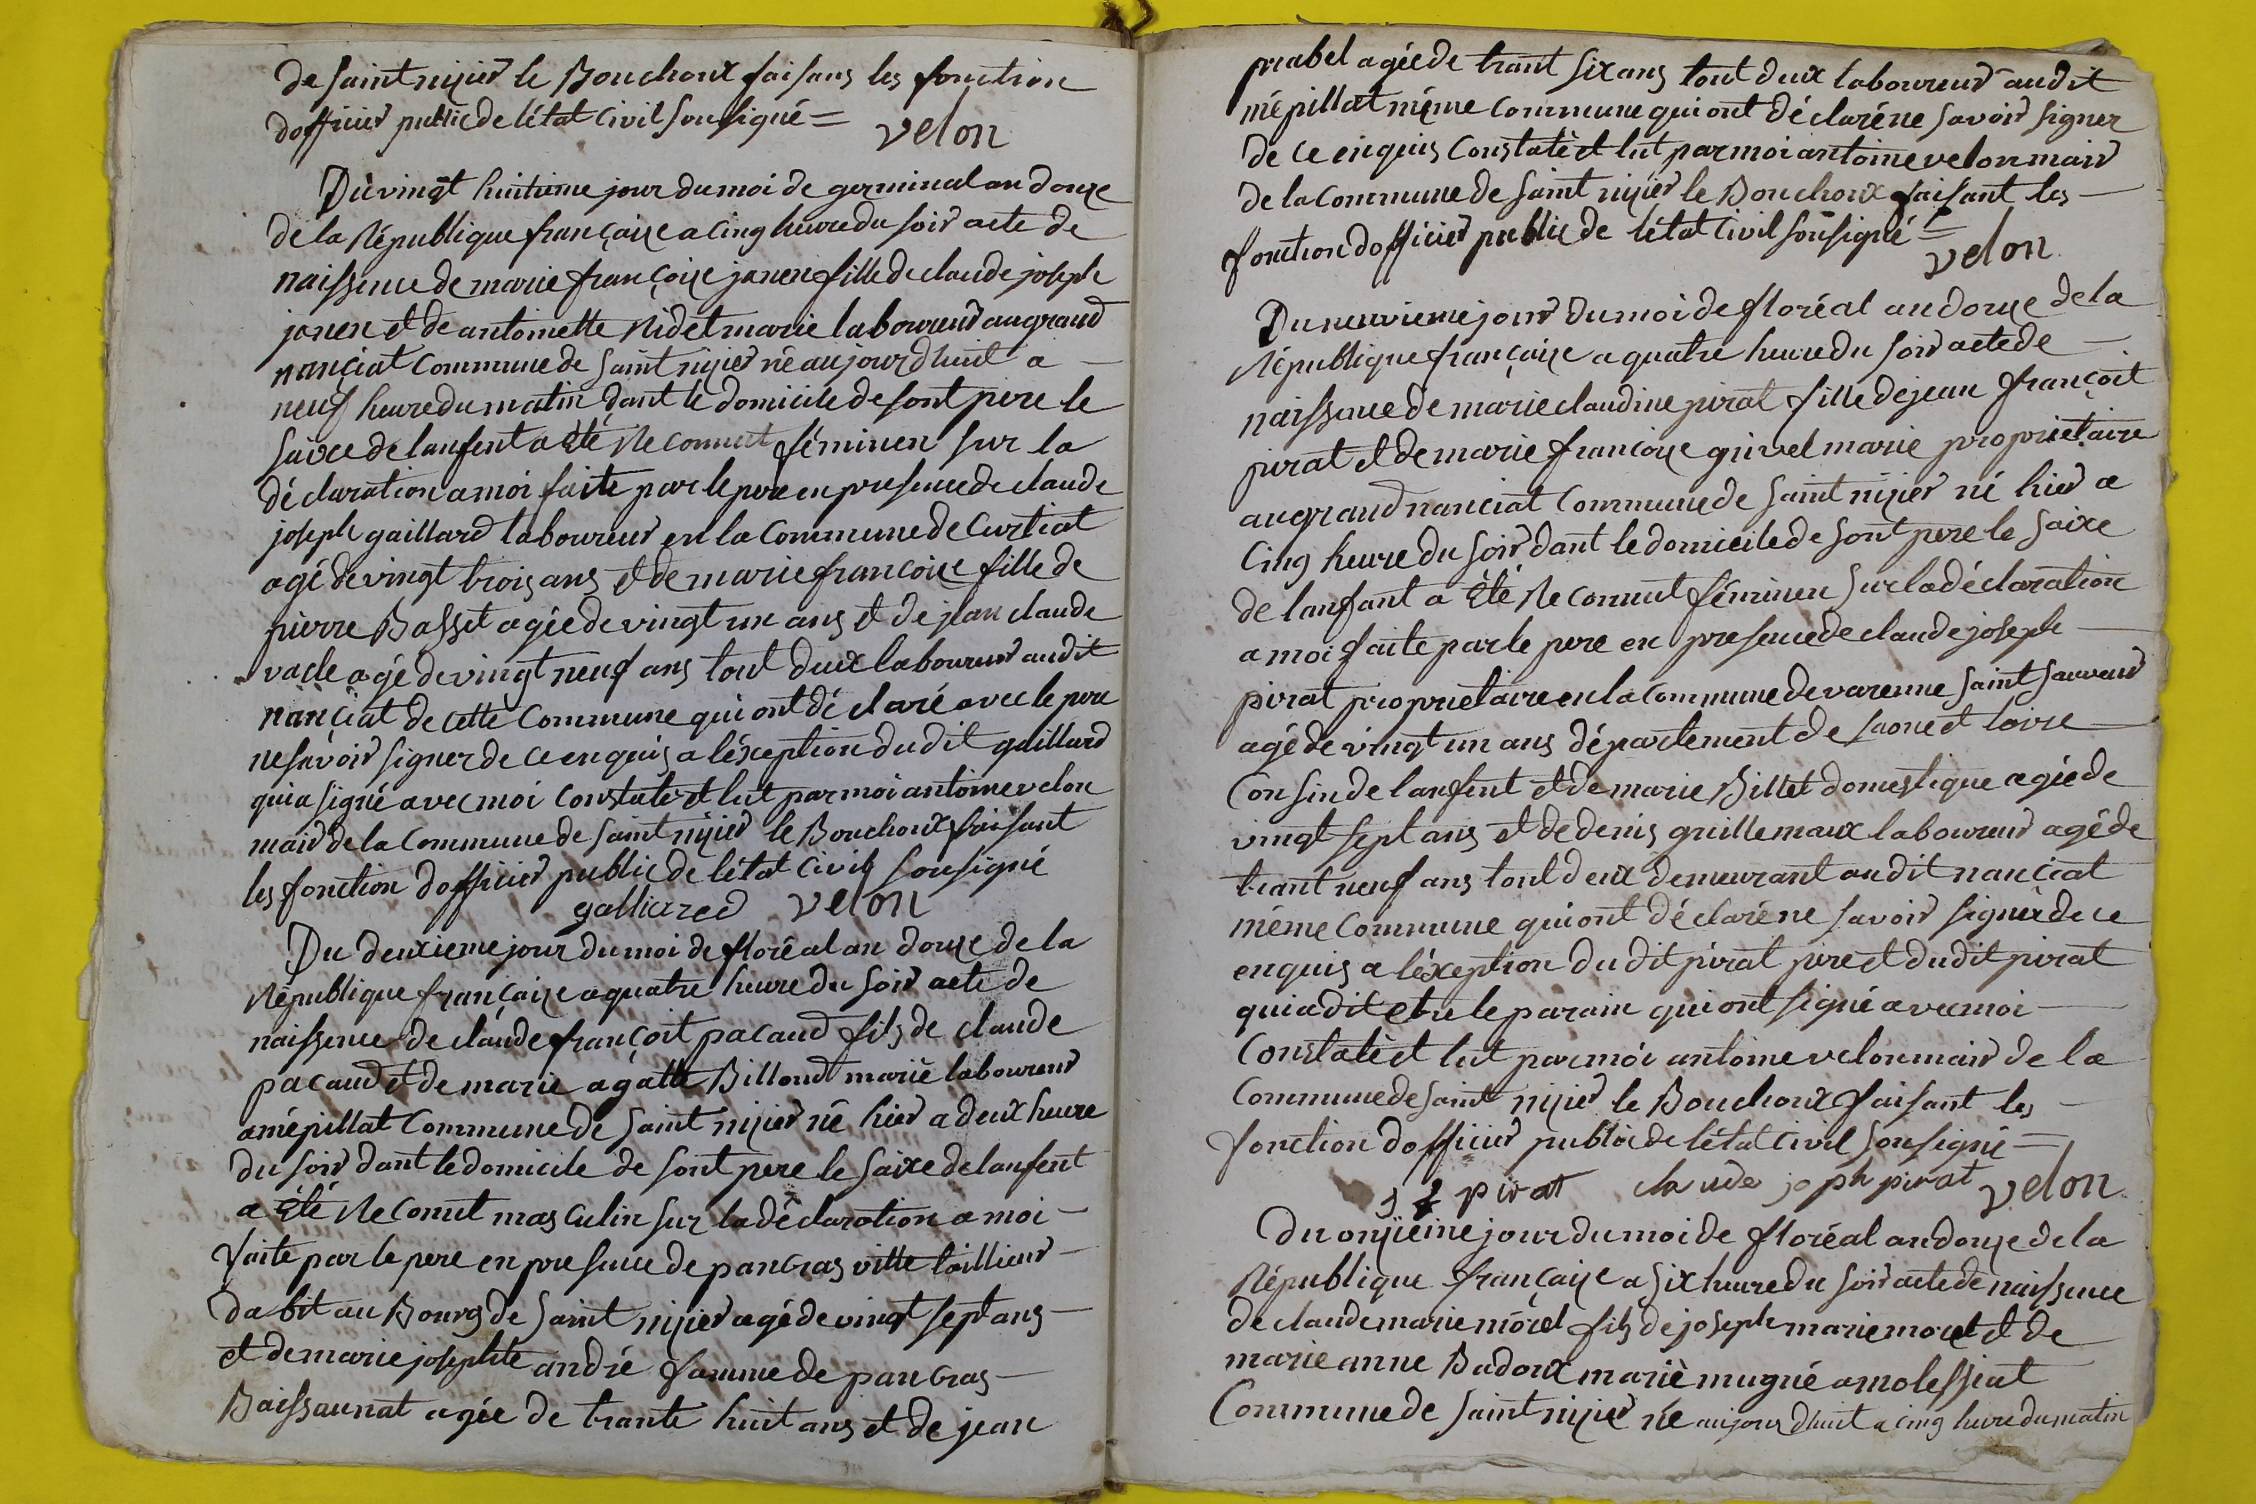 de saint nizier le Bouchoux faisans les fonction
dofficier public de létat civil sousigné =
velon
Du vingt huitieme jour du moi de germinal an douze
de la République françaize a cinq heure du soir acte de
naissence de marie françoize janen fille de claude joseph
janen et de antoinette Nidet marié laboureur au grand
nanciat commune de saint nizier né aujourdhuit a
neuf heure du matin dant le domicile de sont pere le
saixe de lanfent a été Reconnut féminen sur la
déclaration a moi faite par le pere en presence de claude
joseph gaillard laboureur en la commune de Curtiat
agé de vingt trois ans et de marie francoize fille de
pierre Basset agée de vingt un ans et de jean claude
vacle agé de vingt neuf ans tout deux laboureur audit
nanciat de cette commune qui ont déclaré avec le pere
ne savoir signer de ce enquis a léxception dudit gaillard
qui a signé avec moi constaté et lut par moi antoine velon
mair de la commune de saint nizier le Bouchoux faisant
les fonction dofficier public de létat civil sousigné
galliared velon
Du deuxieme jour du moi de floréal an douze de la
République françaize a quatre heure du soir acte de
naissence de claude françoit pacaud fils de claude
pacaud et de marie agatte Billoud marié laboureur
a mépillat commune de saint nizier né hier a deux heure
du soir dant le domicile de sont pere le saixe de lanfent
a été Reconut masculin sur la déclaration a moi
faite par le pere en presence de pancras vitte taillieur
dabit au Bourg de saint nizier agé de vingt sept ans
et de marie josephte andré famme de pancras
Baissaunat agée de trante huit ans et de jean
prabel agée de trant six ans tout deux laboureur audit
mépillat même commune qui ont déclaré ne savoir signer
de ce enquis constaté et lut par moi antoine velon mair
de la commune de saint nizier le Bouchoux faisant les
fonction dofficier public de létat civil sousigné =
velon
Du neuvieme jour du moi de floréal an douze de la
République françaize a quatre heure du soir acte de
naissence de marie claudine pirat fille de jean françoit
pirat et de marie francoize grivel marié propriétaire
au grand nanciat commune de saint nizier né hier a
cinq heure du soir dant le domicile de sont pere le saixe
de lanfant a été Reconnut féminen sur la déclaration
a moi faite par le pere en presence de claude joseph
pirat propriétaire en la commune de varenne saint sauveur
agé de vingt un ans département de saone et loire
cousin de lanfent et de marie Billet domestique agée de
vingt sept ans et de denis guillemaux laboureur agé de
trant neuf ans tout deux demeurant audit nanciat
même commune qui ont déclaré ne savoir signer de ce
enquis a léxception dudit pirat pere et dudit pirat
qui a dit etre le parain qui ont signé avec moi
constaté et lut par moi antoine velon mair de la
commune de saint nizier le Bouchoux faisant les
fonction dofficier public de létat civil sousigné =
j f pirat claude joph pirat velon
Du onzieme jour du moi de floréal an douze de la
République françaize a six heure du soir acte de naissence
de claude marie morel fils de joseph marie morel et de
marie anne Badoux marié mugné a molessiat
Commune de saint nizier né aujourdhuit a cinq heure du matin